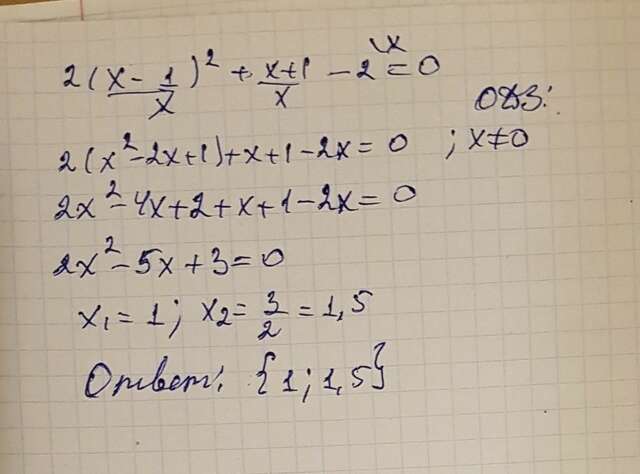 2(x-1/x)² + x+1/x - 2\x = 0
ОДЗ:
2(x²-2x+1)+x+1-2x=0 ; x≠0
2x²-4x+2+x+1-2x=0
2x²-5x+3=0
x₁=1; x₂=3/2=1,5
Ответ: {1; 1,5}